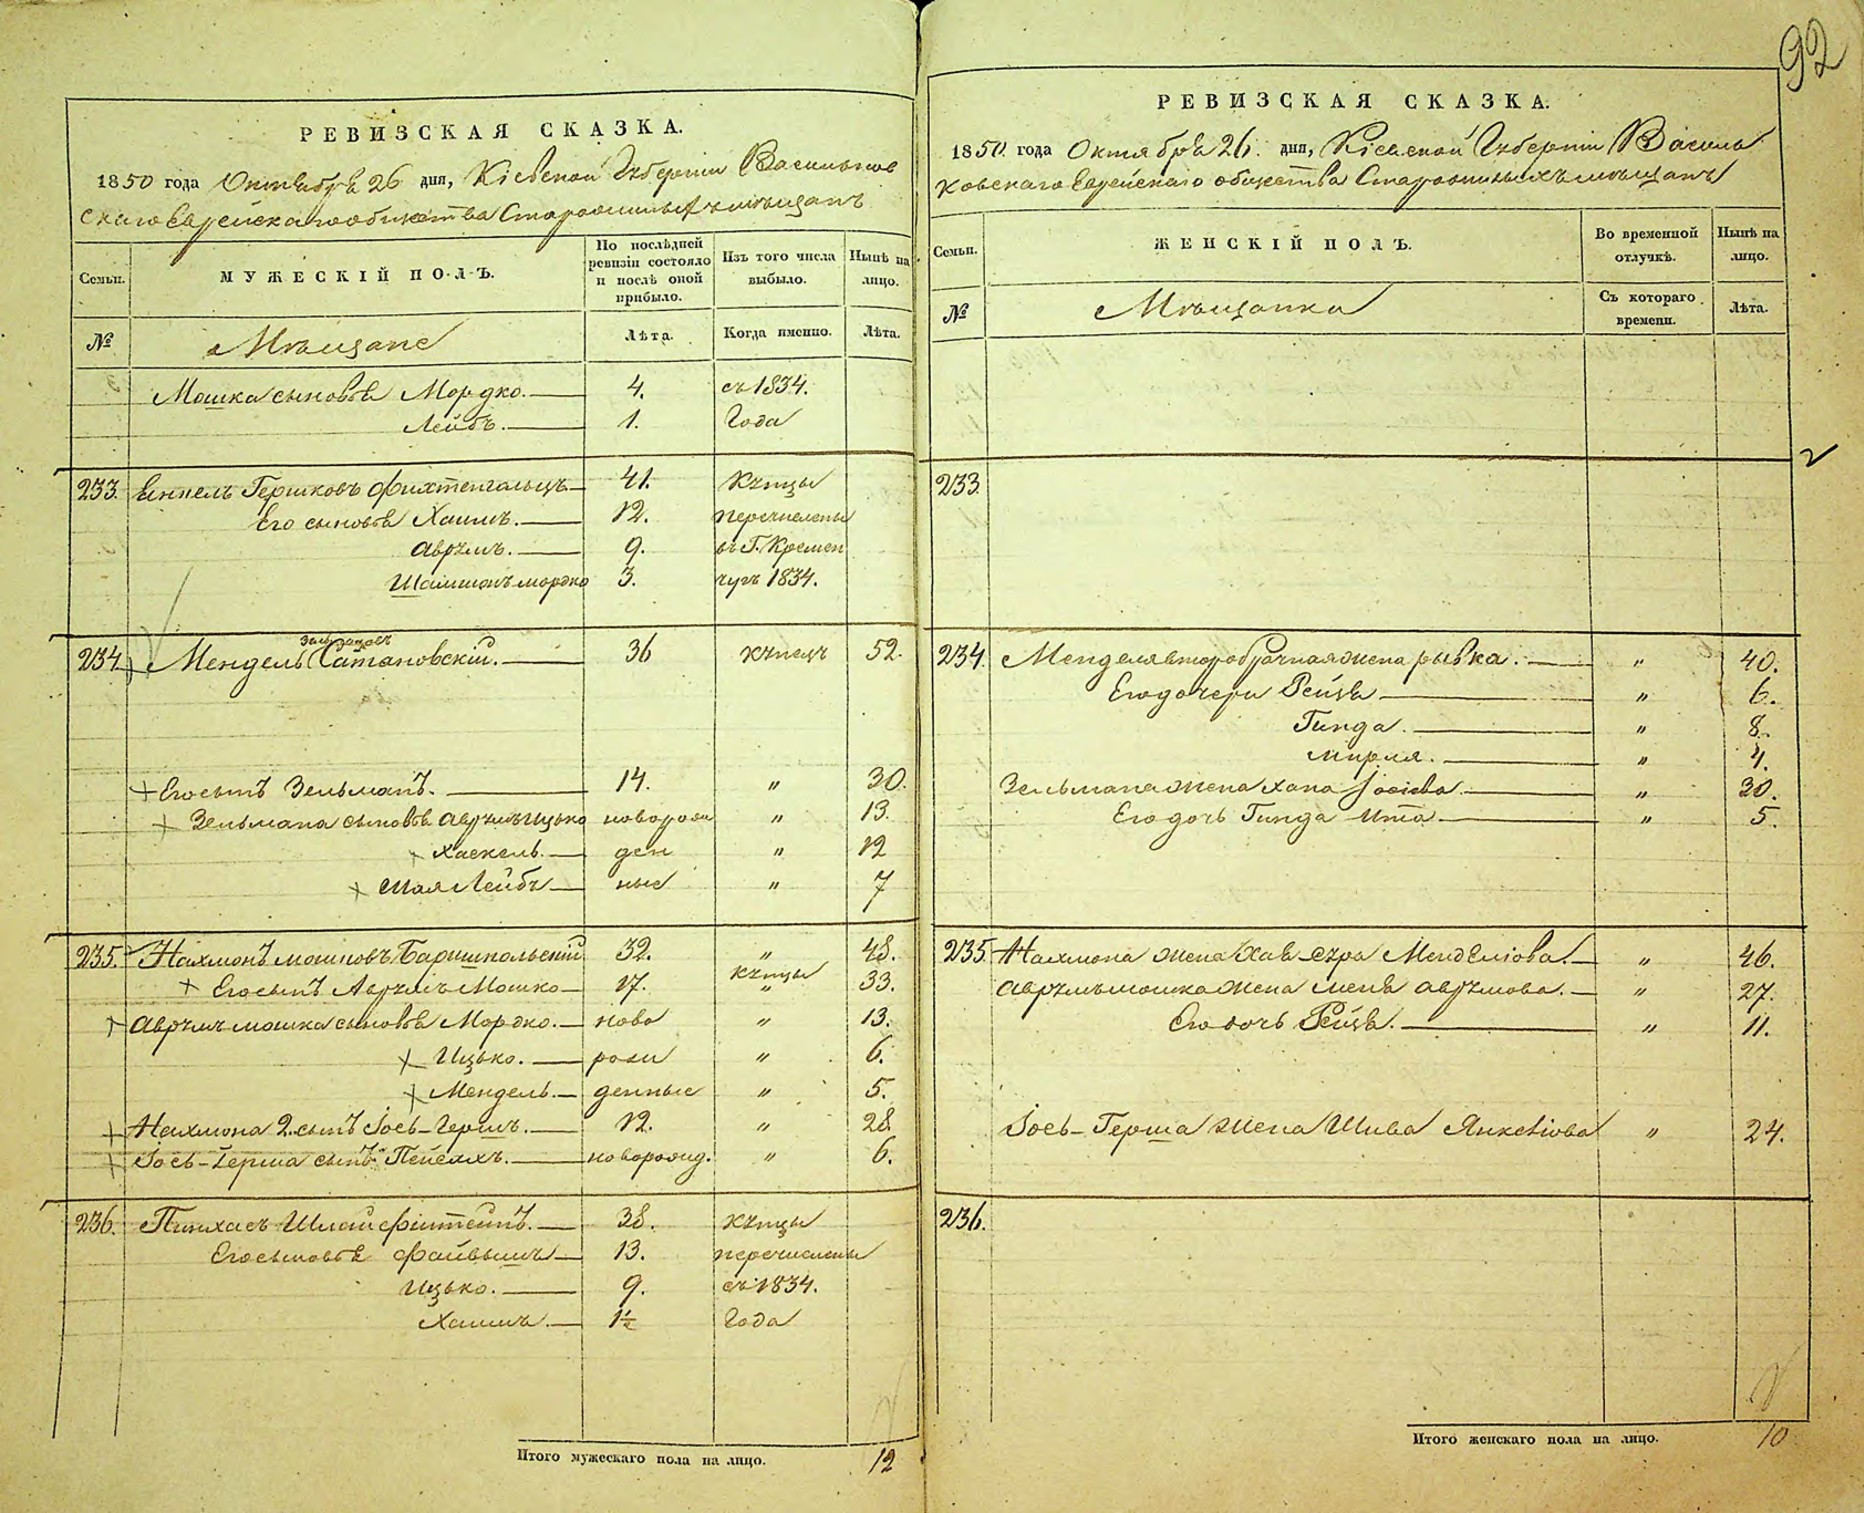 92
РЕВИЗСКАЯ СКАЗКА.
1850 года Октября 26 дня, Кіевской Губерніи Васильков
скаго Еврейскаго общества Старожилыхъ мѣщанъ
Семьи.
МУЖЕСКІЙ ПОЛЪ.
По послѣдней ревизіи состояло и послѣ оной прибыло.
Изъ того числа выбыло.
Нынѣ на лицо.
№
Мѣщане
Лѣта.
Когда именно.
Лѣта.
Мошка сыновья Мордко. 4. съ 1834.
Лейбъ. 1. Года
233. Гершковъ Фихтенгольцъ 41. Купцы
Его сыновья Хаимъ. 12. перечислены
Аврумъ. 9. въ Г. Кремен
Шамшонъ мордко 3. чугъ 1834.
234. Мендель Сатановскій. 36 купецъ 52.
Его сынъ Зельманъ. 14. " 30.
Зельмана сыновья Аврумъ Ицько новорож " 13.
Хаскель. ден " 12
Лейбъ ные " 7
235. Нахмонъ мошковъ Баришпольскій 32. " 48.
Его сынъ Аврумъ Мошко 17. купцы " 33.
Аврумъ мошка сыновья Мордко. ново " 13.
Ицько. рож " 6.
Мендель. денные " 5.
Нахмона 2. сынъ Іось-Гершъ. 12. " 28.
Іось-Герша сынъ Пейсахъ. новорожд. " 6.
236. Пинхасъ 38. купцы
Его сыновья Файвышъ 13. перечислены
Ицько. 9. съ 1834.
Хаимъ. 1½ Года
Итого мужескаго пола на лицо. 12
РЕВИЗСКАЯ СКАЗКА.
1850 года Октября 26. дня, Кіевской Губерніи Василь
ковскаго Еврейскаго общества Старожилыхъ мѣщанъ
Семьи.
ЖЕНСКІЙ ПОЛЪ.
Во временной отлучкѣ.
Нынѣ на лицо.
№
Мѣщанки
Съ котораго времени.
Лѣта.
233.
234. Менделя второбрачная жена рывка. " 40.
Его дочери Рейзя " 6.
Гинда. " 8.
Мирля. " 4.
Зельмана жена хана Іосіова. " 30.
Его дочь Гинда Ита " 5.
235. Нахмона жена Хав-сура Менделіова. " 46.
Аврумъ мошка жена меня аврумова. " 27.
Его дочь Рейзя. " 11.
Іось-Герша жена Шива Янкеліова " 24.
236.
Итого женскаго пола на лицо. 10